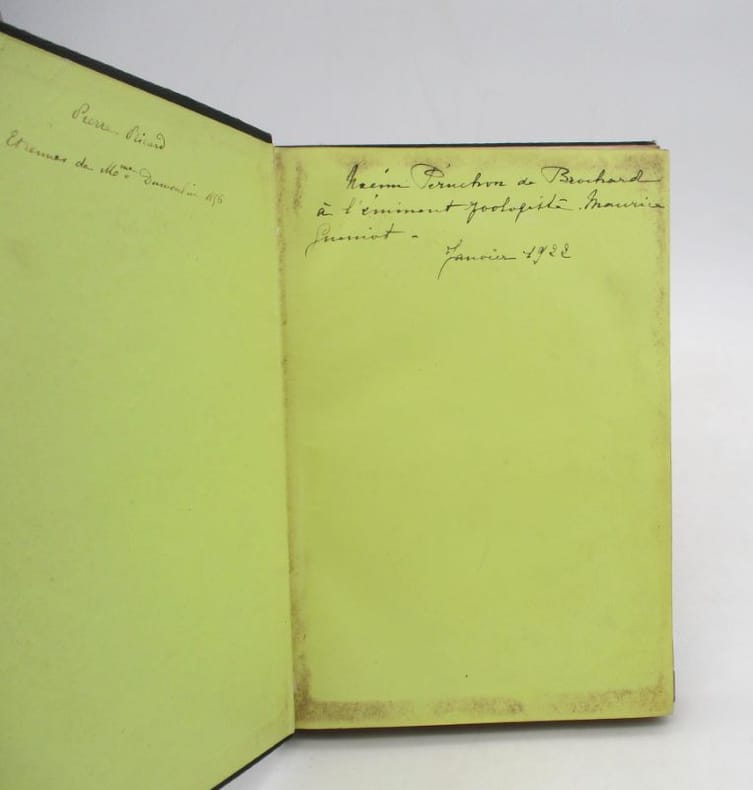 Pierre Picard
Etrennes de Mme Dumoulin 1876
Péruchon de Brochard
à l'éminent zoologiste Maurice
Janvier 1922